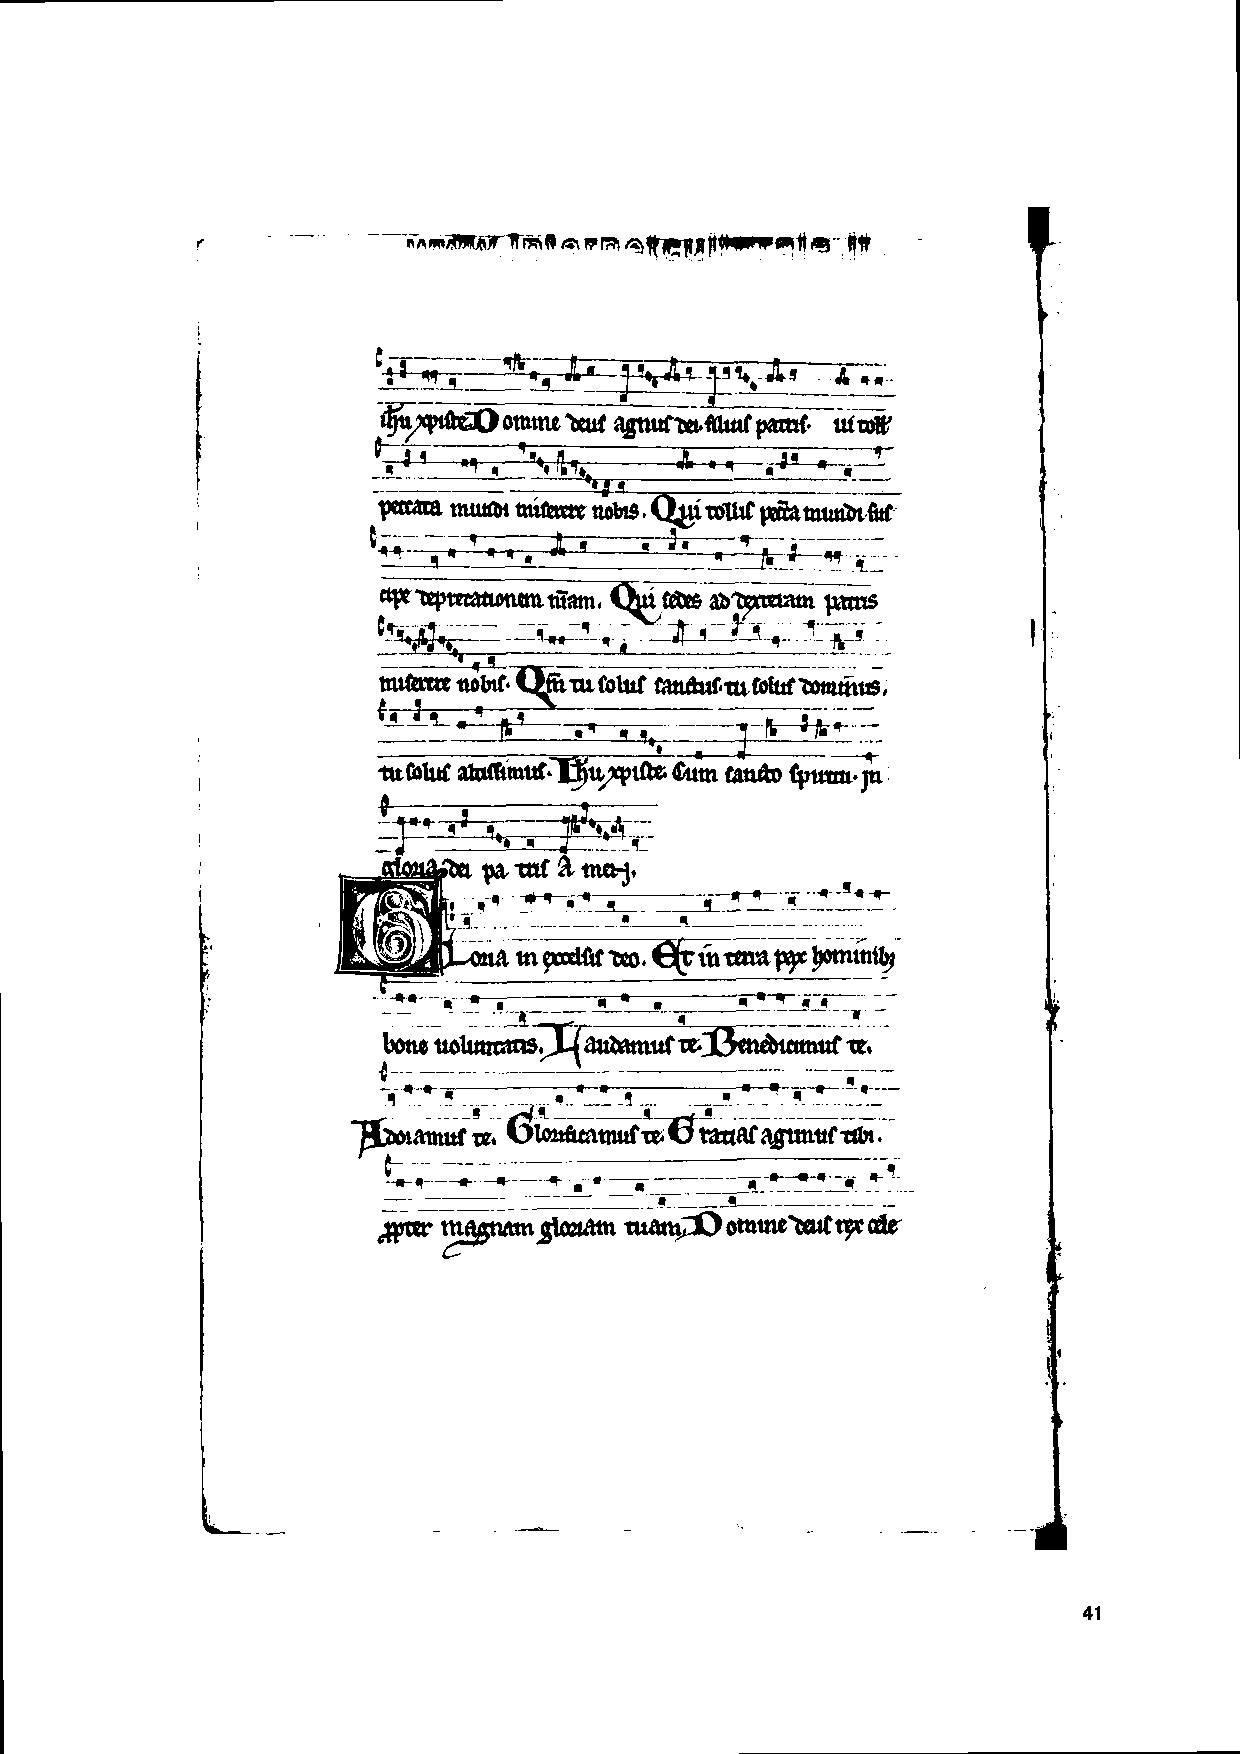 ihu xpiste. Domine deus agnus dei. filius patris. ui toll'
peccata mundi miserere nobis. Qui tollis pecc̄a mundi. sus
cipe deprecationem nr̄am. Qui sedes ad dexteram patris
miserere nobis. Qm̄ tu solus sanctus. tu solus dominus.
tu solus altissimus. Ihu xpiste. Cum sancto spiritu. in
gloria dei pa tris A men.
Gloria in excelsis deo. Et in terra pax hominibꝫ
bone uoluntatis. Laudamus te. Benedicimus te.
Adoramus te. Glorificamus te. Gratias agimus tibi.
ꝓpter magnam gloriam tuam. Domine deus rex cele
41